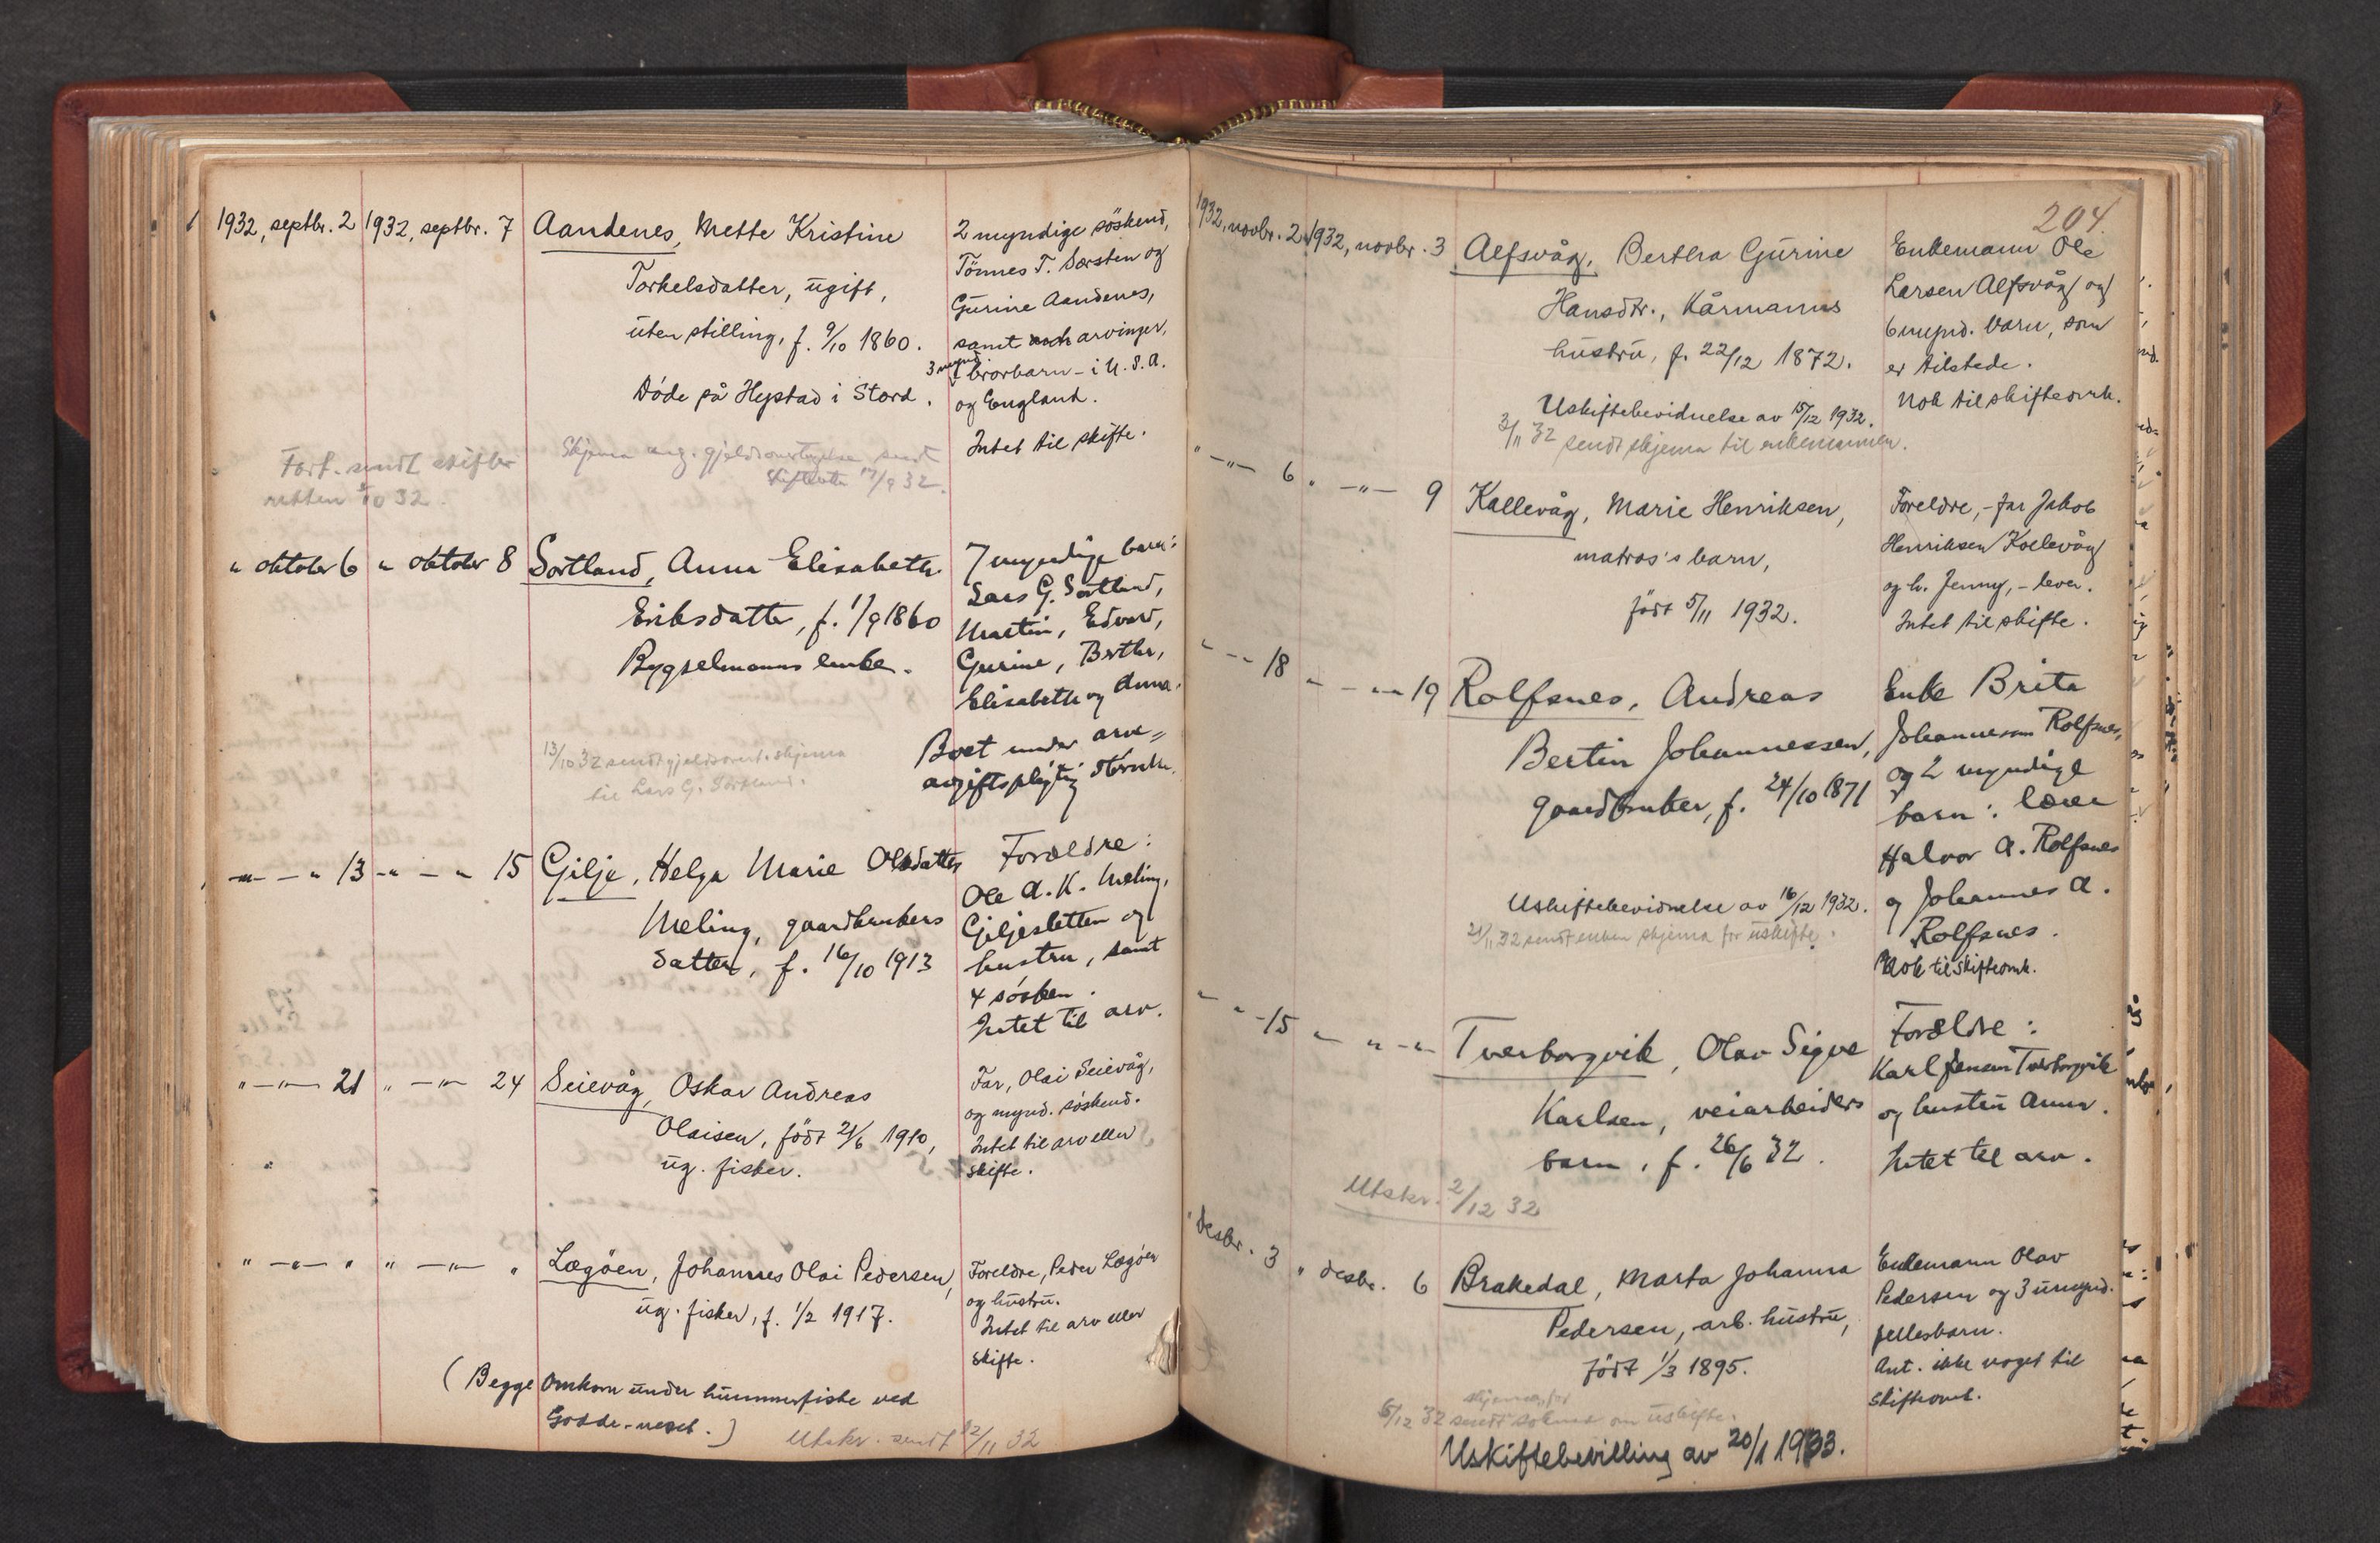 1932, septbr. 2 1932, septbr. 7 Aandenes, Mette Kristine
Torkelsdatter, ugift,
uten stilling, f. 9/10 1860.
Døde på Hystad i Stord.
2 myndige søskend,
Tønnes T. Sørsten og
Gurine Aandenes,
samt arvinger,
3 mynd. brorbarn - i U.S.A.
og England.
Intet til skifte.
Fort. sendt skifte-
retten 3/10 32.
Skjema ang. gjeldsovertagelse sendt
skifteretten 17/9 32.
" oktober 6 " oktober 8 Sortland, Anna Elisabeth
Eriksdatter, f. 1/9 1860
Bygselmanns enke.
7 myndige barn:
Lars G. Sortland,
Martin, Edvard,
Gurine, Berthe,
Elisabeth og Anna.
Boet under arve-
avgiftspligtig størrelse.
13/10 32 sendt gjeldsovert. skjema
til Lars G. Sortland.
" — " 13 " — " 15 Gilje, Helga Marie Olsdatter
Meling, gaardbrukers
datter, f. 16/10 1913
Forældre:
Ole A. K. Meling,
Giljesletten og
hustru, samt
4 søsken.
Intet til arv.
" — " — 21 " — " — 24 Seievåg, Oskar Andreas
Olaisen, født 21/6 1910,
ug. fisker.
Far, Olai Seievåg,
og mynd. søskend.
Intet til arv eller
skifte.
" — " — " " — " — " Lægøen, Johannes Olai Pedersen,
ug. fisker, f. 1/2 1917.
Foreldre, Peder Lægøen
og hustru.
Intet til arv eller
skifte.
(Begge omkom under hummerfiske ved
Godde-neset.)
Utskr. sendt 12/11 32
204.
1932, novbr. 2 1932, novbr. 3 Alfsvåg, Bertha Gurine
Hansdtr., kårmanns
hustru, f. 22/12 1872.
Uskiftebevidnelse av 15/12 1932.
3/11 32 sendt skjema til enkemannen.
Enkemann Ole
Larsen Alfsvåg og
6 mynd. barn, som
er tilstede.
Nok til skifteomk.
" — " — 6 " — " — 9 Kallevåg, Marie Henriksen,
matros's barn,
født 5/11 1932.
Foreldre, - far Jakob
Henriksen Kallevåg
og h. Jenny, - lever.
Intet til skifte.
" — — 18 " — " — 19 Rolfsnes, Andreas
Bertin Johannessen,
gaardbruker, f. 24/10 1871
Uskiftebevidnelse av 16/12 1932.
21/11 32 sendt enken skjema for uskifte.
Enke Brita
Johannesen Rolfsnes,
og 2 myndige
barn: lærer
Halvor A. Rolfsnes
og Johannes A.
Rolfsnes.
Nok til skifteomk.
" — " — 15 " — " — " Tverborgvik, Olav Sigve
Karlsen, veiarbeiders
barn, f. 26/6 32.
Forældre:
Karl Jensen Tverborgvik
og hustru Anna.
Intet til arv.
Utskr. 2/12 32
" desbr. 3 " desbr. 6 Brakedal, Marta Johanna
Pedersen, arb. hustru,
født 1/3 1895.
Enkemann Olav
Pedersen og 3 umynd.
fellesbarn.
Ant. ikke noget til
skifteomk.
skjema for
6/12 32 sendt søknad om uskifte.
Uskiftebevilling av 20/1 1933.